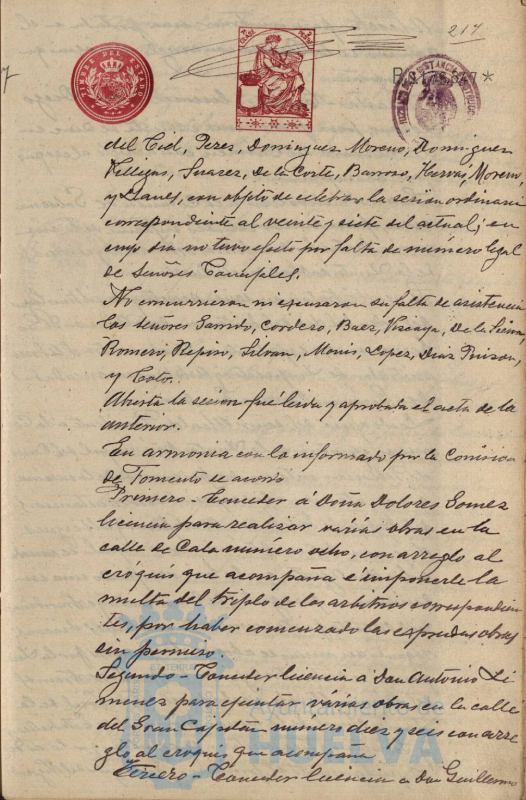 217
TIMBRE DEL ESTADO
del Cid, Perez, Dominguez Moreno, Dominguez
Villegas, Suarez, De la Corte, Barroso, Hervás, Moreno
y Llanes, con objeto de celebrar la sesión ordinaria
correspondiente al veinte y siete del actual; en
cuyo dia no tuvo efecto por falta de número legal
de Señores Concejales.
No concurrieron ni escusaron su falta de asistencia
los señores Garrido, Cordero, Baez, Vizcaya, De la Sierra,
Romero, Repiso, Silvan, Monis, Lopez, Diaz
y Coto.
Abierta la sesion fué leida y aprobada el acta de la
anterior.
En armonia con lo informado por la Comision
de Fomento se acordó
Primero - Conceder á Doña Dolores Gomez
licencia para realizar várias obras en la
calle de Cala número ocho, con arreglo al
cróquis que acompaña é imponerle la
multa del triplo de los arbitrios correspondien
tes, por haber comenzado las espresdas obras
sin permiso.
Segundo - Conceder licencia a Don António Li
menez para ejecutar várias obras en la calle
del Gran Capitán número diez y seis con arre
glo al croquis que acompaña
Tercero - Conceder licencia a Don Guillermo